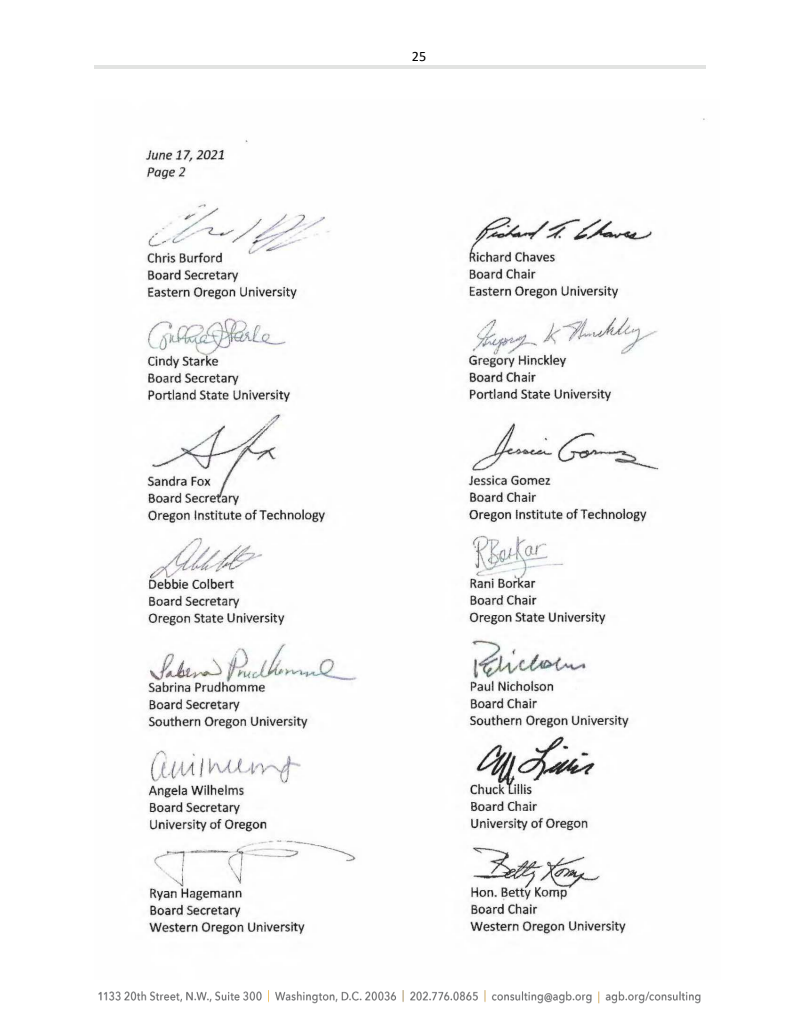 25
June 17, 2021
Page 2
Chris Burford
Board Secretary
Eastern Oregon University
Richard T. Chaves
Richard Chaves
Board Chair
Eastern Oregon University
Cindy Starke
Board Secretary
Portland State University
Gregory K Hinckley
Gregory Hinckley
Board Chair
Portland State University
Sandra Fox
Board Secretary
Oregon Institute of Technology
Jessica Gomez
Jessica Gomez
Board Chair
Oregon Institute of Technology
Debbie Colbert
Board Secretary
Oregon State University
RBorkar
Rani Borkar
Board Chair
Oregon State University
Sabrina Prudhomme
Sabrina Prudhomme
Board Secretary
Southern Oregon University
Paul Nicholson
Board Chair
Southern Oregon University
Angela Wilhelms
Board Secretary
University of Oregon
Lillis
Chuck Lillis
Board Chair
University of Oregon
Ryan Hagemann
Board Secretary
Western Oregon University
Betty Komp
Hon. Betty Komp
Board Chair
Western Oregon University
1133 20th Street, N.W., Suite 300 | Washington, D.C. 20036 | 202.776.0865 | consulting@agb.org | agb.org/consulting